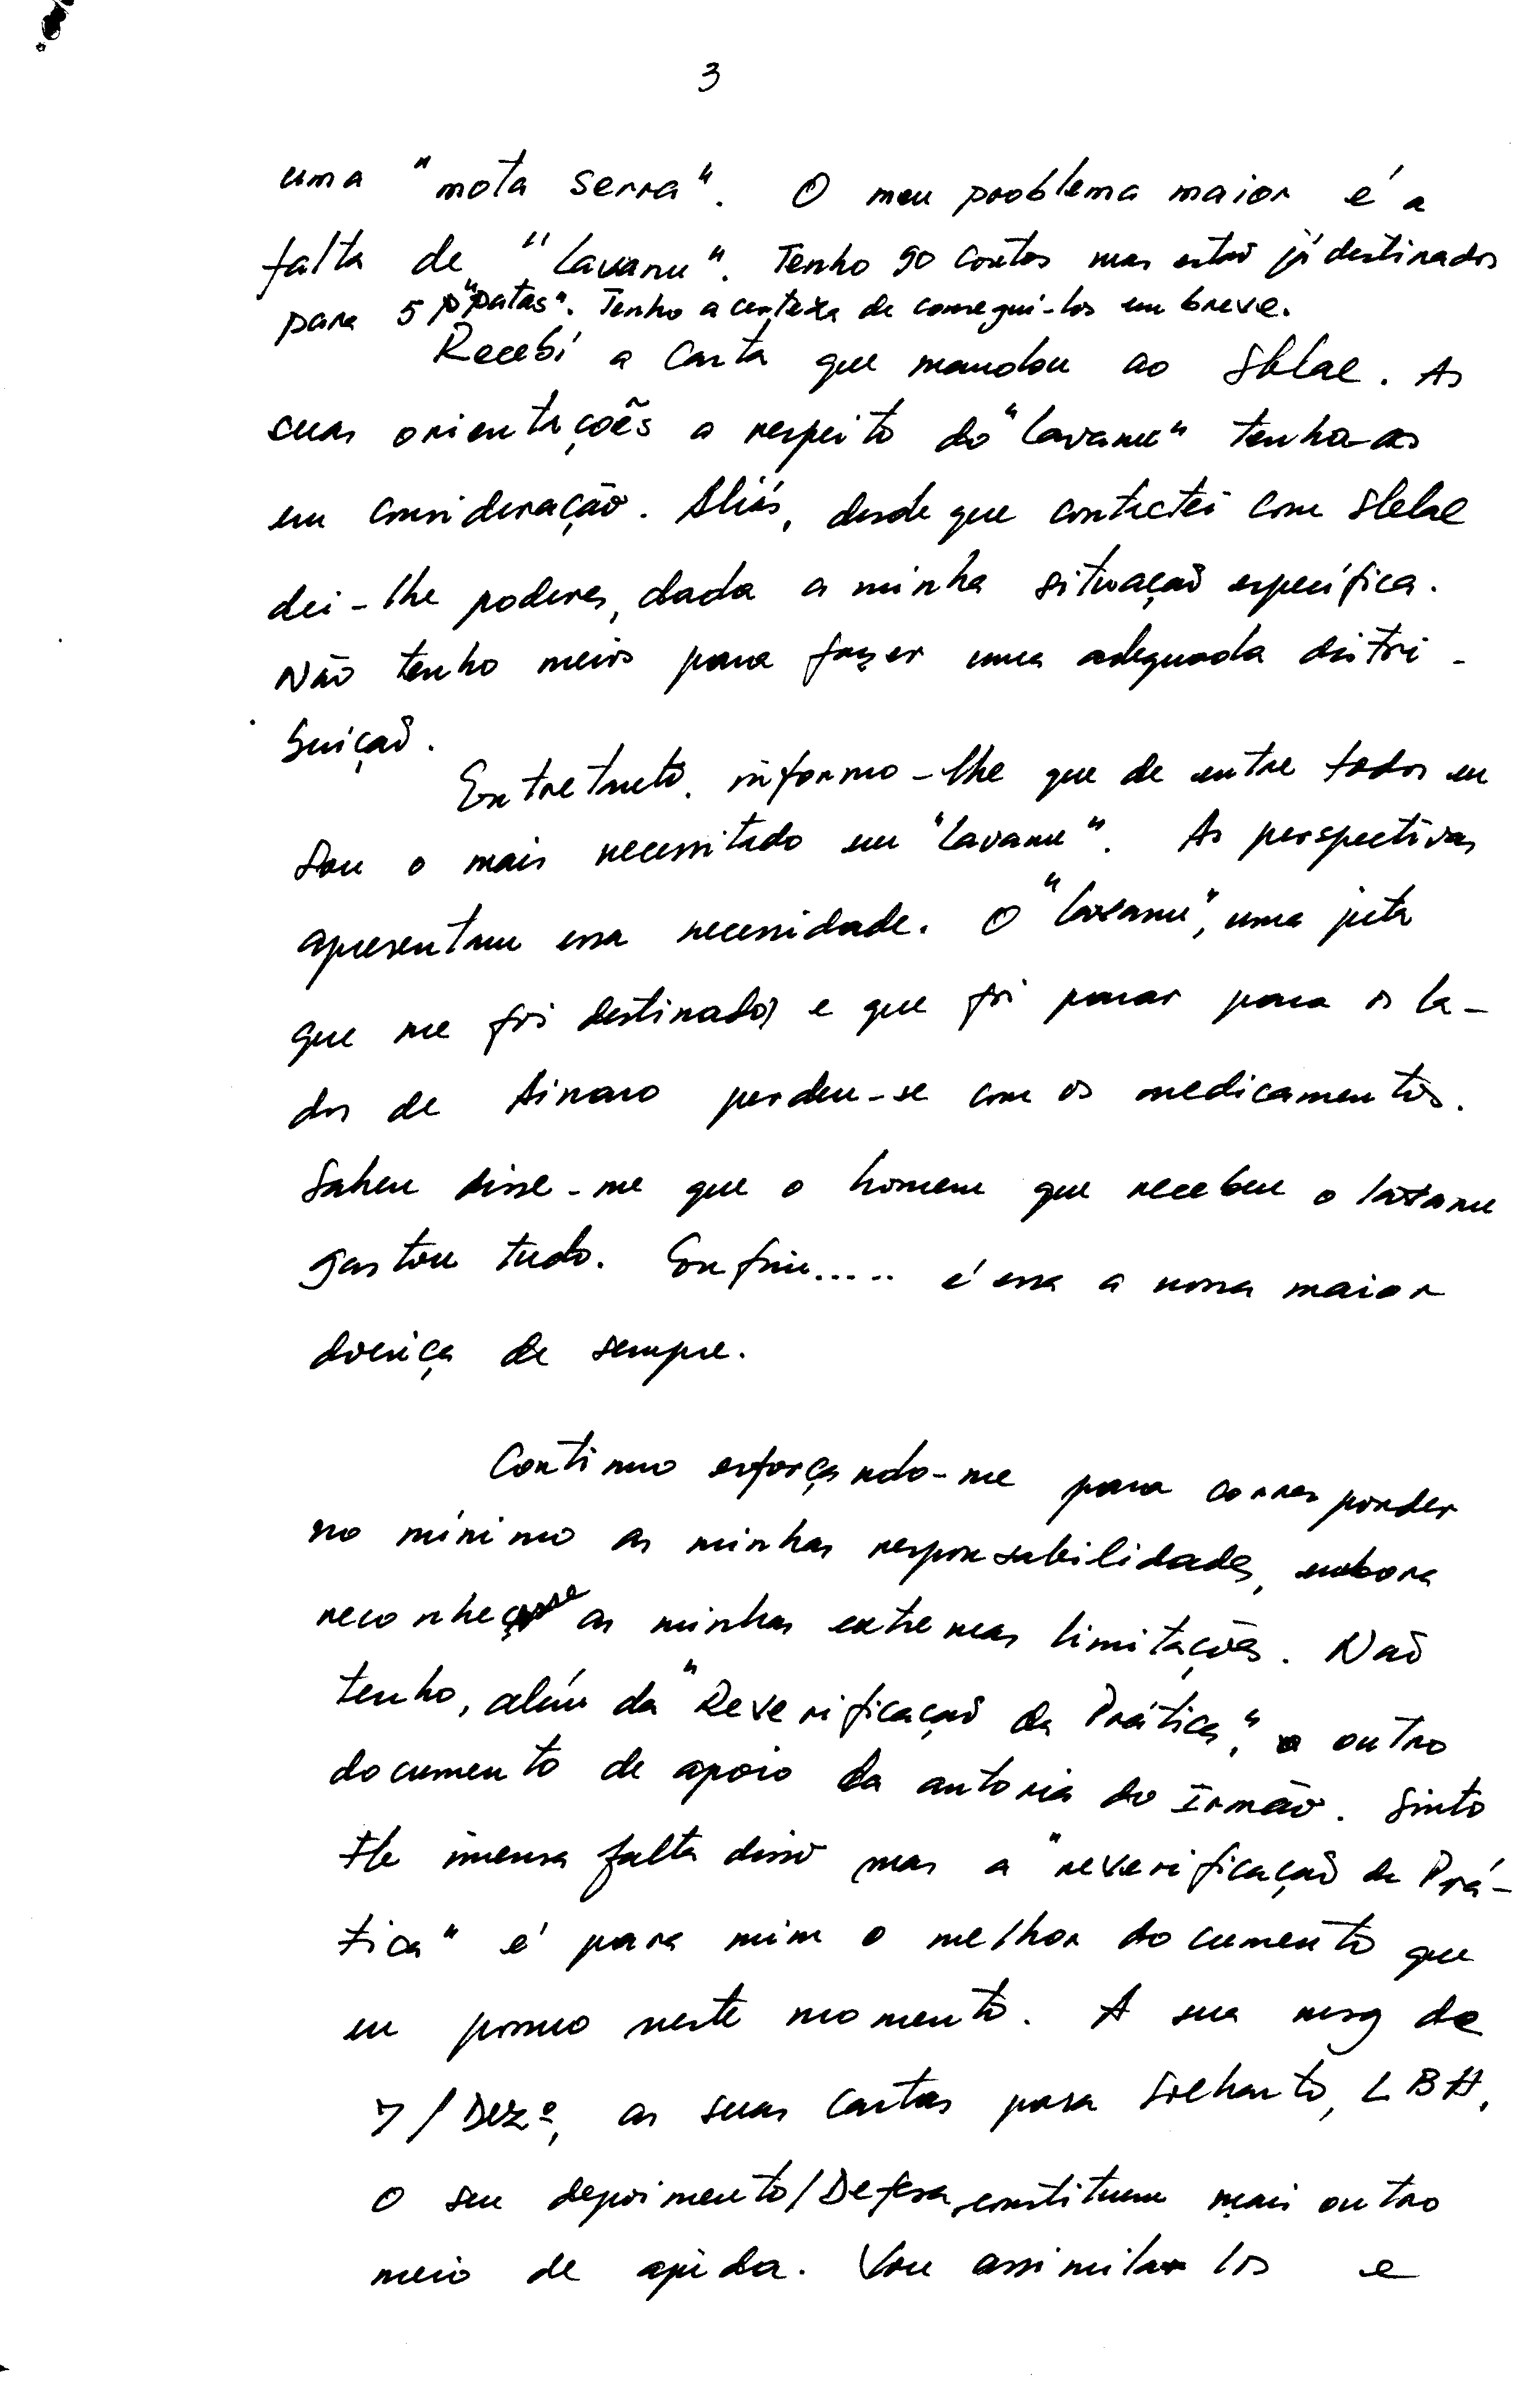 3
uma "mota serra". O meu problema maior é a
falta de "Lavanu". Tenho 90 contos mas estão já destinados
para 5 p"patas". Tenho a certeza de consegui-los em breve.
Recebí a carta que mandou ao . As
suas orientações a respeito do "lavanu" tenho-as
em consideração. Aliás, desde que contactei com
dei-lhe poderes, dada a minha situação específica.
Não tenho meios para fazer uma adequada distri-
buição.
Entretanto, informo-lhe que de entre todos eu
sou o mais necessitado em "lavanu". As perspectivas
apresentam essa necessidade. O "lavanu", uma
que me foi destinado e que foi parar para os la-
dos de Ainaro perdeu-se com os medicamentos.
disse-me que o homem que recebeu o lavanu
gastou tudo. Enfim..... é essa a nossa maior
doença de sempre.
Continuo esforçando-me para corresponder
no mínimo as minhas responsabilidades, embora
reconheça as minhas extremas limitações. Não
tenho, além da "Reverificação da Prática", outro
documento de apoio da autoria do Irmão. Sinto
imensa falta disso mas a "reverificação da Prá-
tica" é para mim o melhor documento que
eu possuo neste momento. A sua msg de
7/Dezº, as suas cartas para , LBH,
o seu depoimento/Defesa constituem mais outro
meio de ajuda. Vou assimila los e